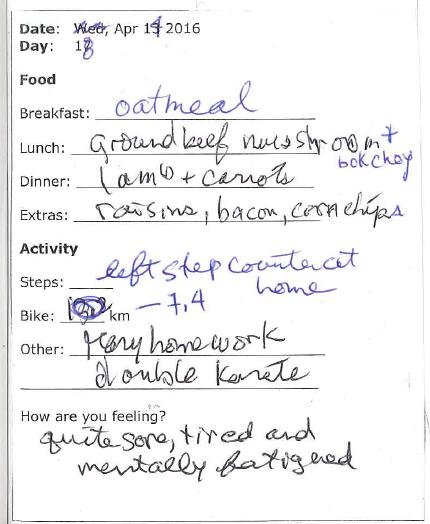 Date: Wed, Apr 14 2016
Day: 18
Food
Breakfast: oatmeal
Lunch: ground beef mushroom +
bok choy
Dinner: lamb + carrots
Extras: raisins, bacon, corn chips
Activity
left step counter at
Steps: home
Bike: km - 7,4
Other: homework
double Karate
How are you feeling?
quite sore, tired and
mentally fatigued